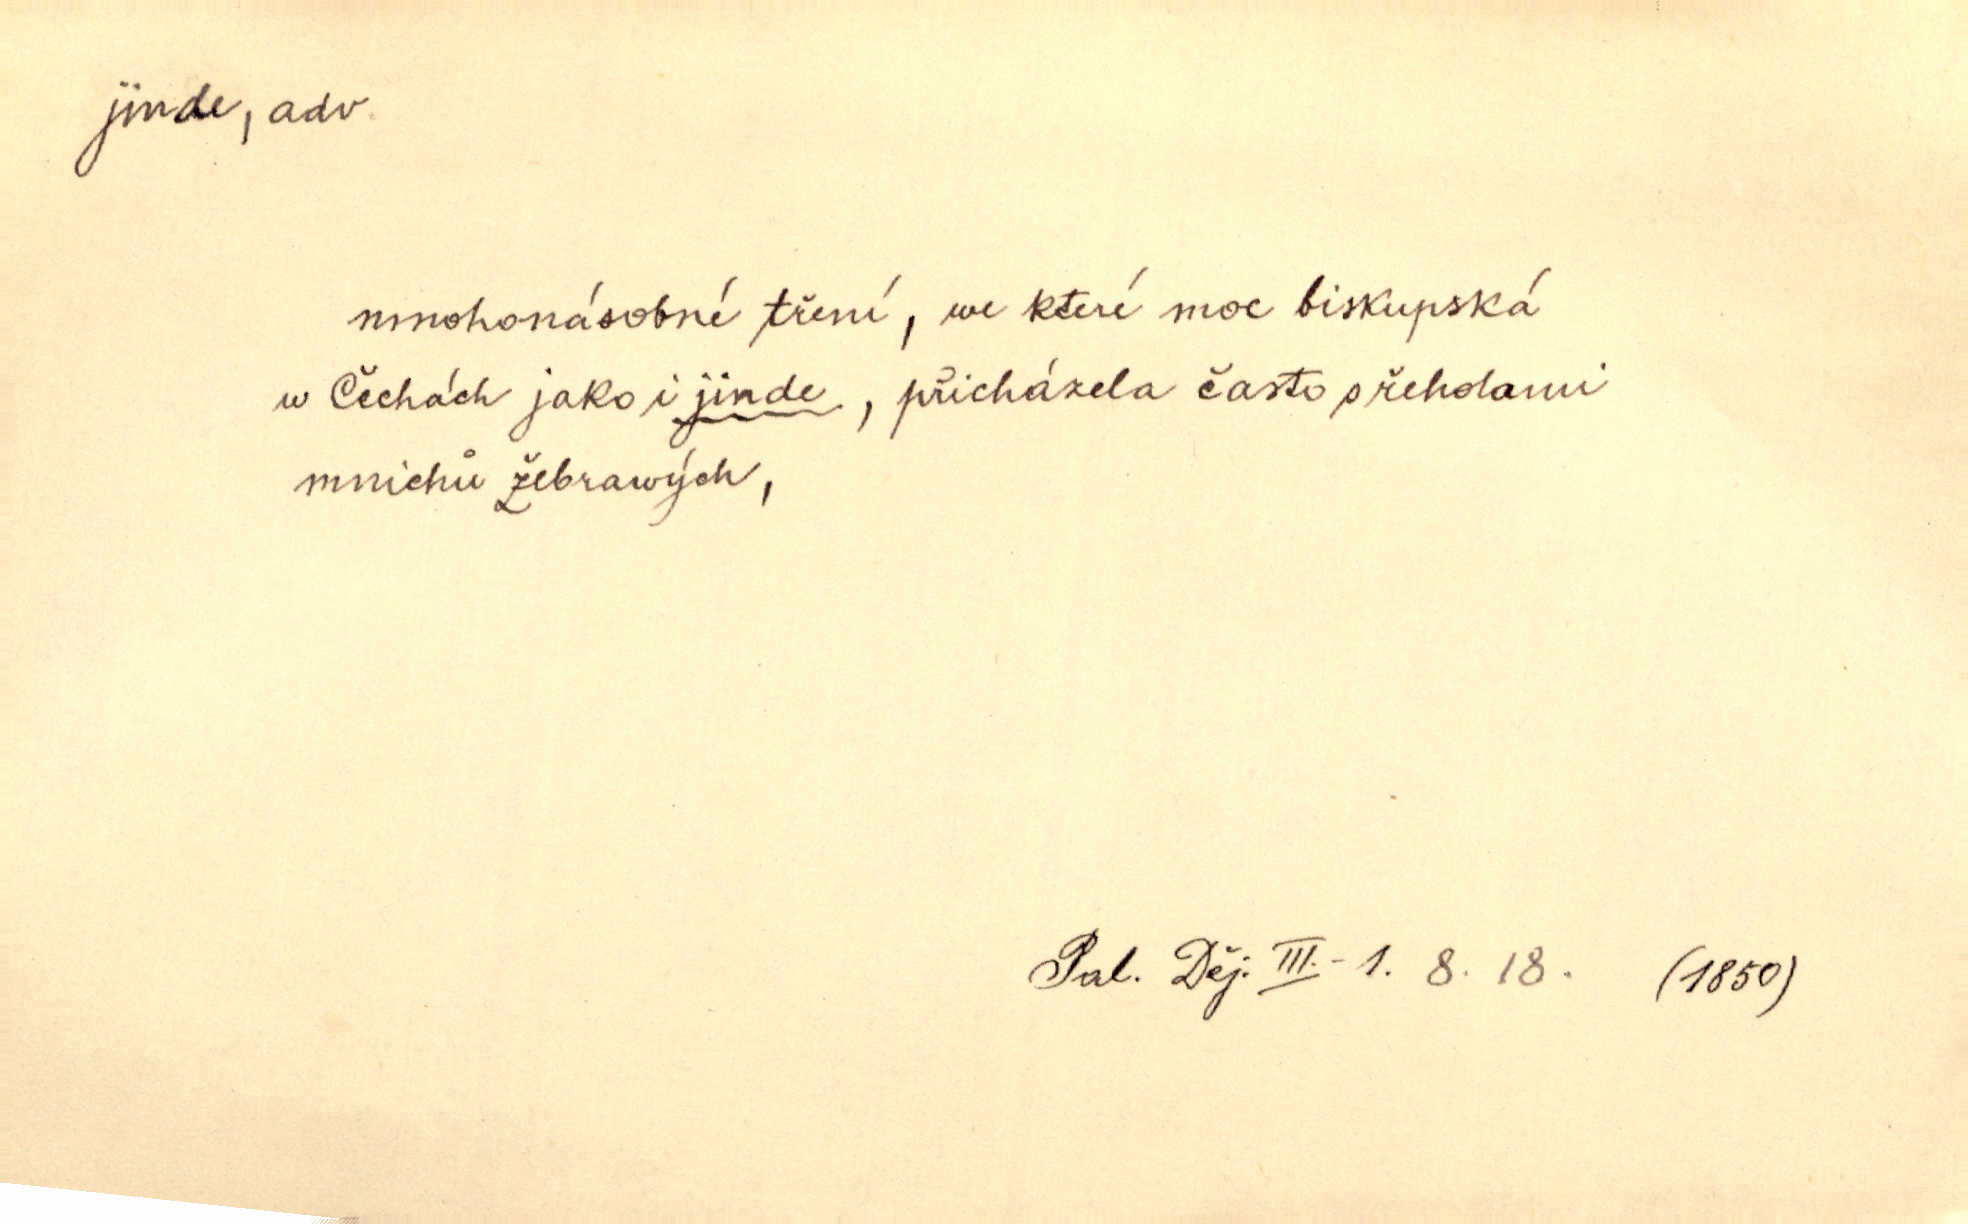 jinde, adv.
mnohonásobné tření, we které moc biskupská
w Čechách jako i jinde, přicházela často s řeholami
mnichů žebrawých,
Pal. Děj. III.-1. 8. 18. (1850)